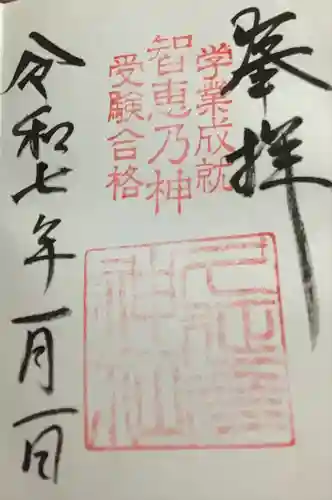 奉拝
学業成就
智恵乃神
受験合格
令和七年一月一日